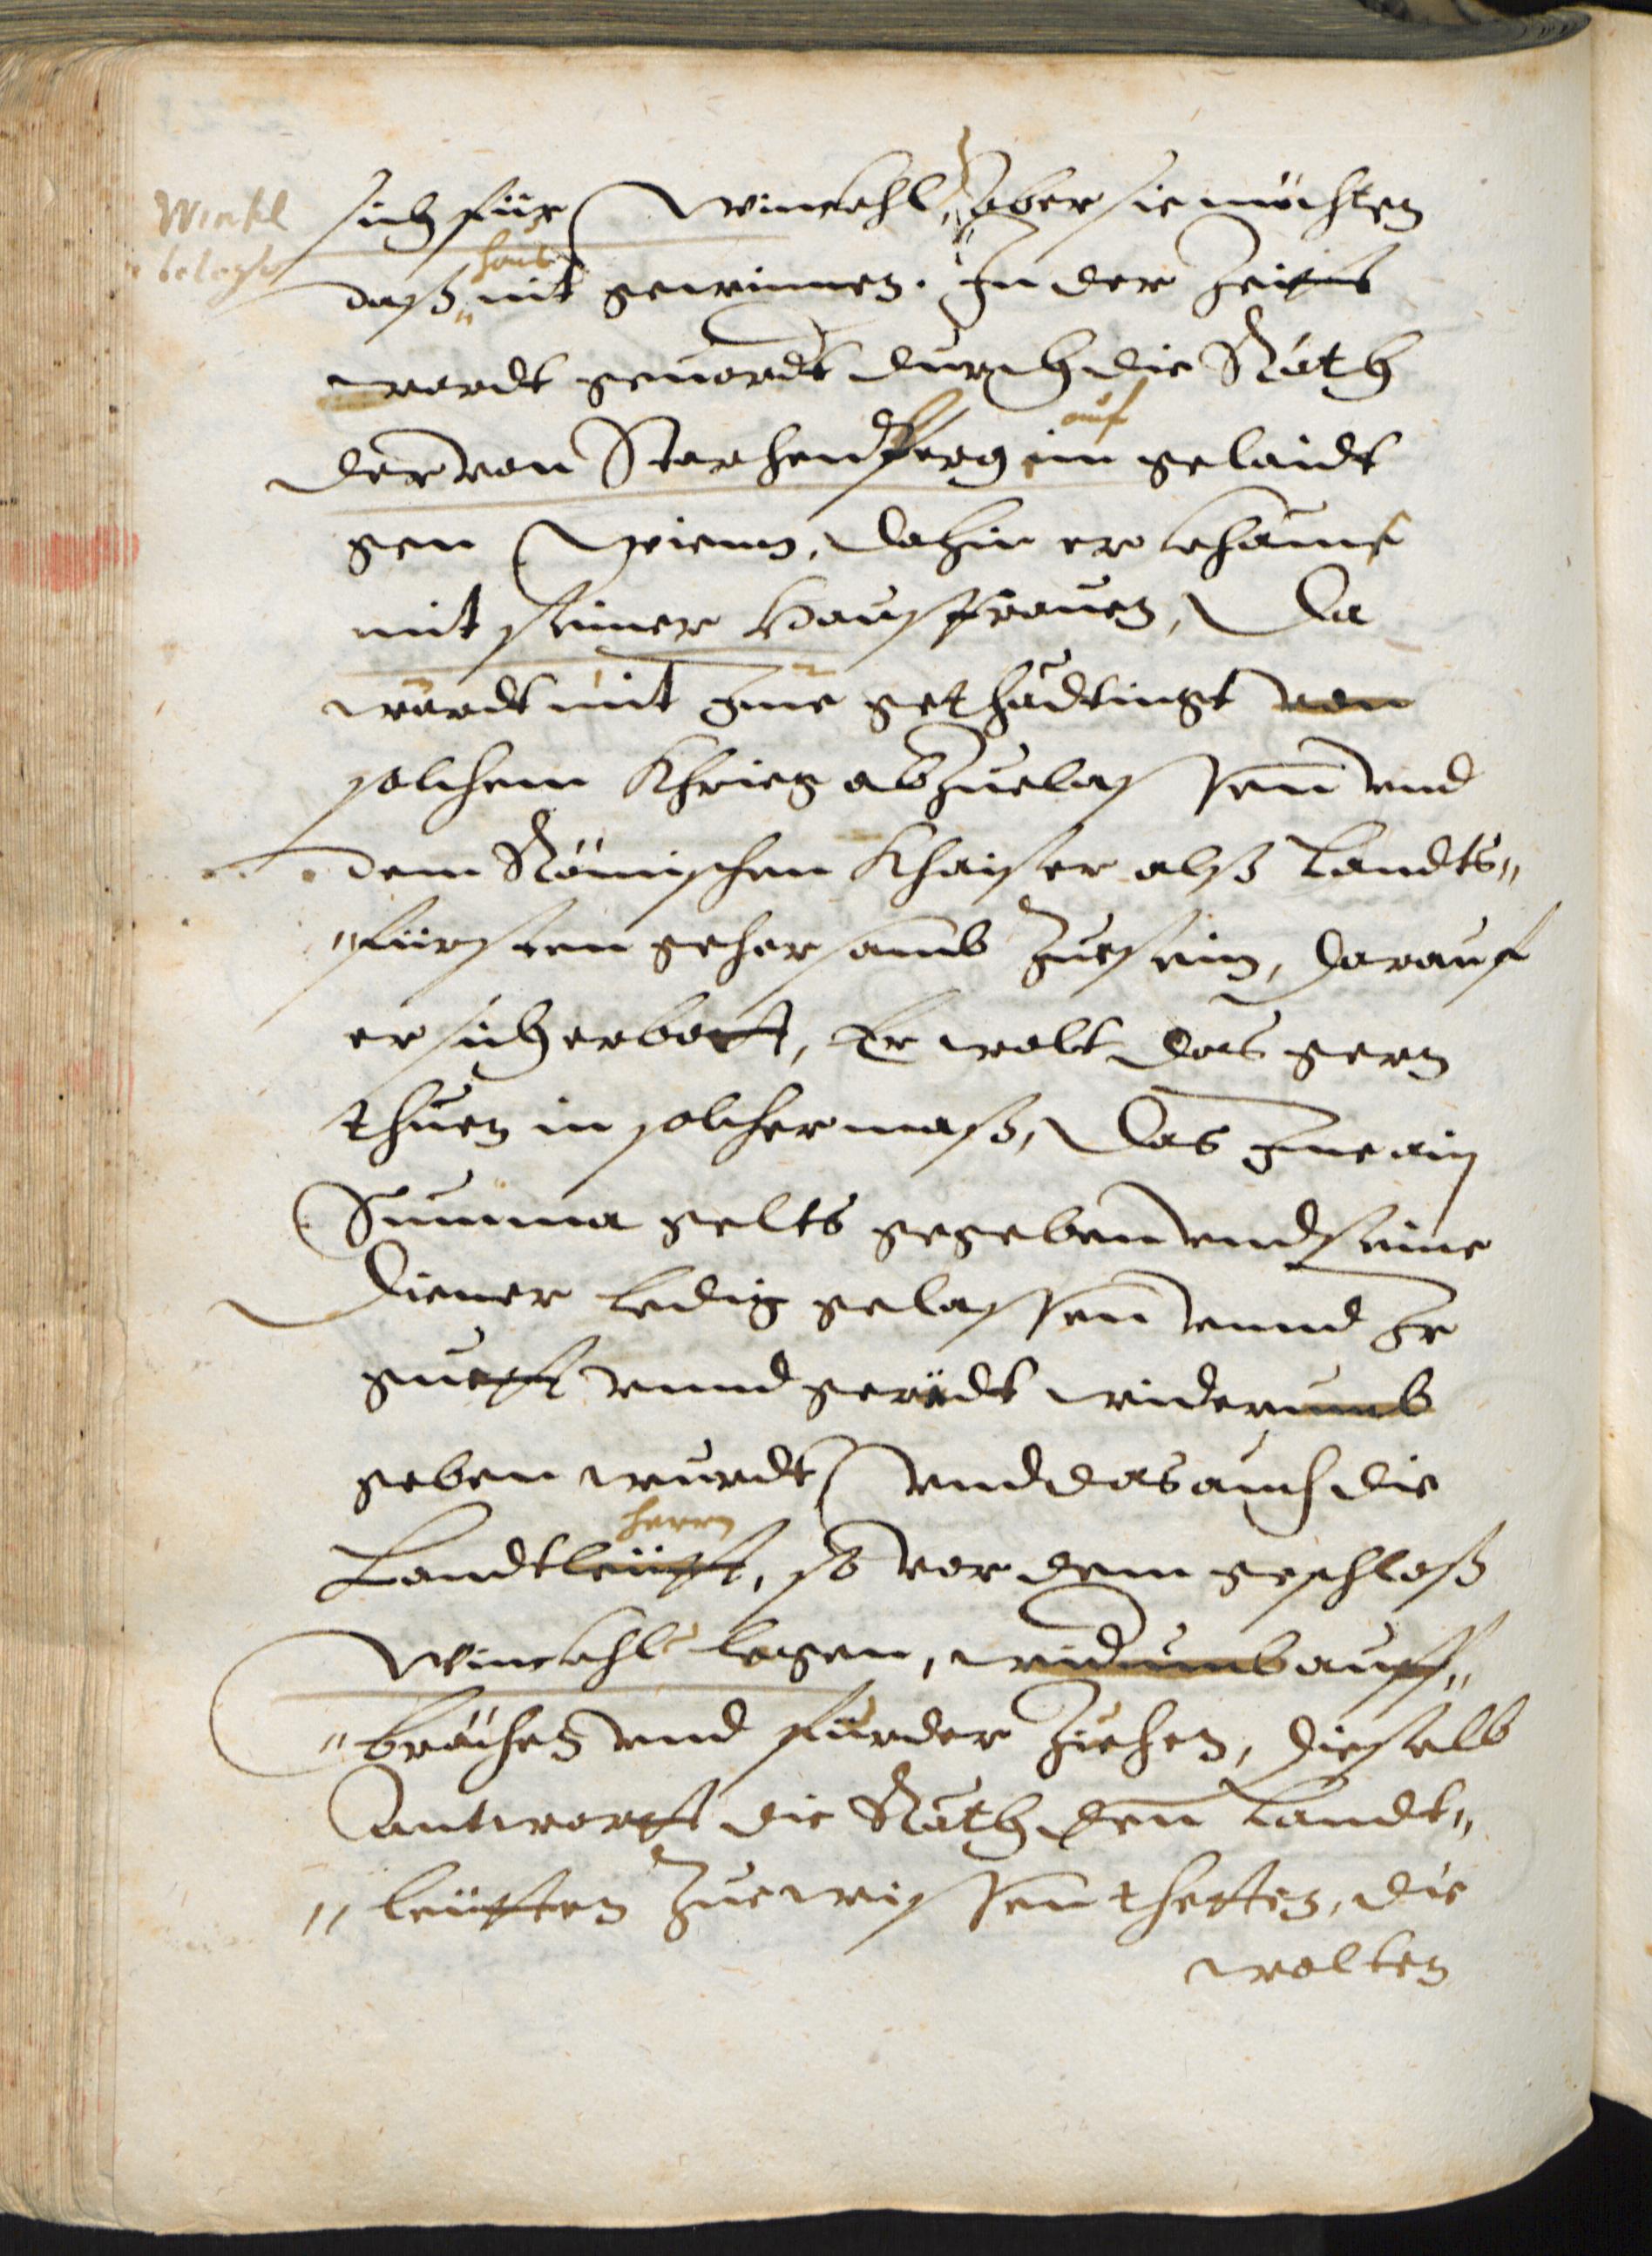 Winkl
belegt
sich für Winckhl, aber sie möchten
haus
daß nit gewinnen. In der Zeitt
wardt gewordt durch die Räth
auf
der von Storhenberg im gelaidt
gen Wienn, dahin er khamb
mit seiner Haußfrauen, Da
wardt mit Ime gethädtingt von
solchem Khrieg abzuelassen vnd
dem Römischen Khaiser alß Landts„
„fürsten gehorsamb zuesein, darauf
er sich erbott, Er wolt das gern
thuen in solcher maß, Das Ime ain
Summa gelts gegeben vnd seine
Diener ledig gelassen vnnd Ir
guett vnnd gerädt widerumb
geben wurdt, vnd das auch die
herrn
Landtleütt, so vor dem geschloß
Winckhl lagen, widerumb auff„
„brächen vnd fürder ziehen, dieselb
Antwortt die Räth den Landt„
„leütten zuewissen thetten, die
wolten